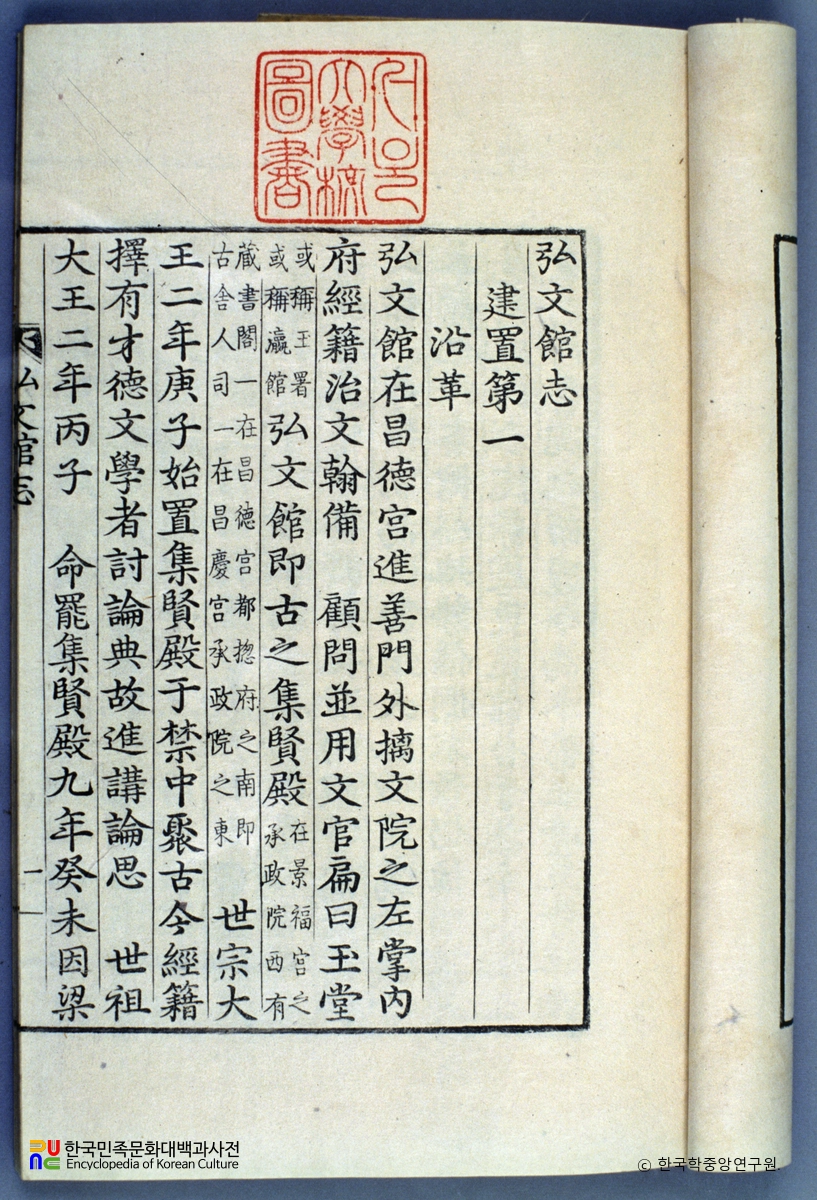 서울
大學校
圖書
弘文館志
建置第一
沿革
弘文館在昌德宮進善門外摛文院之左掌內
府經籍治文翰備 顧問並用文官扁曰玉堂
或稱玉署或稱瀛館弘文館即古之集賢殿在景福宮之承政院西有
藏書閣一在昌德宮都揔府之南即古舍人司一在昌慶宮承政院之東 世宗大
王二年庚子始置集賢殿于禁中聚古今經籍
擇有才德文學者討論典故進講論思 世祖
大王二年丙子 命罷集賢殿九年癸未因梁
弘文館志 一
한국민족문화대백과사전
Encyclopedia of Korean Culture
© 한국학중앙연구원